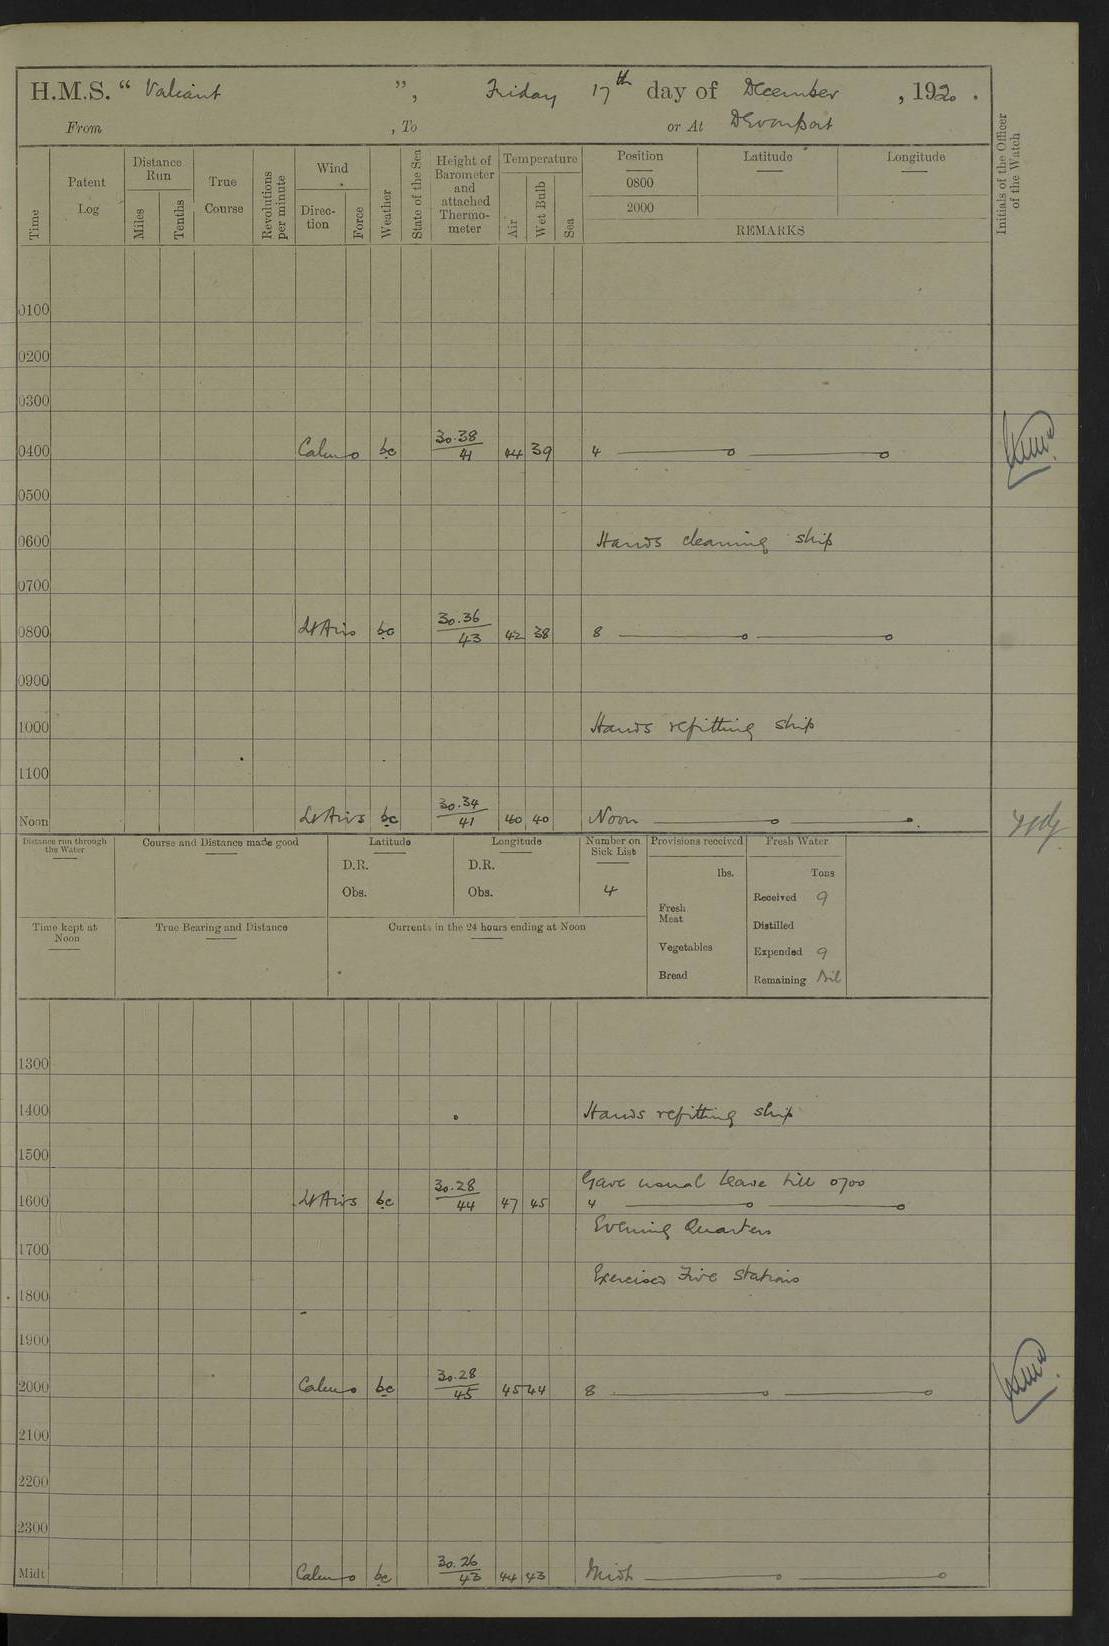 H.M.S. “ Valiant ”, Friday 17th day of December , 1920 .
From , To or At Devonport
Time
Patent Log
Distance Run
Miles
Tenths
True Course
Revolutions per minute
Wind
Direc-tion
Force
Weather
State of the Sea
Height of Barometer and attached Thermo-meter
Temperature
Air
Wet Bulb
Sea
Position Latitude Longitude
0800
2000
REMARKS
Initials of the Officer of the Watch
0100
0200
0300
0400 Calm 0 bc 30.38/41 44 39 4
0500
0600 Hands cleaning ship
0700
0800 Lt Airs bc 30.36/43 42 38 8
0900
1000 Hands refitting ship
1100
Noon Lt Airs bc 30.34/41 40 40 Noon
Distance run through the Water
Course and Distance made good
Latitude
D.R.
Obs.
Longitude
D.R.
Obs.
Number on Sick List
4
Provisions received
lbs.
Fresh Meat
Vegetables
Bread
Fresh Water
Tons
Received 9
Distilled
Expended 9
Remaining Nil
Time kept at Noon
True Bearing and Distance
Currents in the 24 hours ending at Noon
1300
1400 Hands refitting ship
1500
Gave usual leave till 0700
1600 Lt Airs bc 30.28/44 47 45 4
Evening Quarters
1700
Exercised Fire stations
1800
1900
2000 Calm 0 bc 30.28/45 45 44 8
2100
2200
2300
Midt Calm 0 bc 30.26/43 44 43 Midt